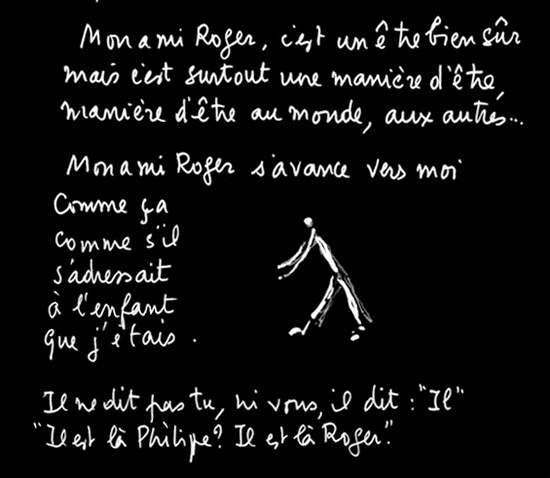 Mon ami Roger, c'est un être bien sûr
mais c'est surtout une manière d'être,
manière d'être au monde, aux autres...
Mon ami Roger s'avance vers moi
Comme ça
comme s'il
s'adressait
à l'enfant
que j'étais.
Il ne dit pas tu, ni vous, il dit : "Il"
"Il est là Philipe? Il est là Roger."